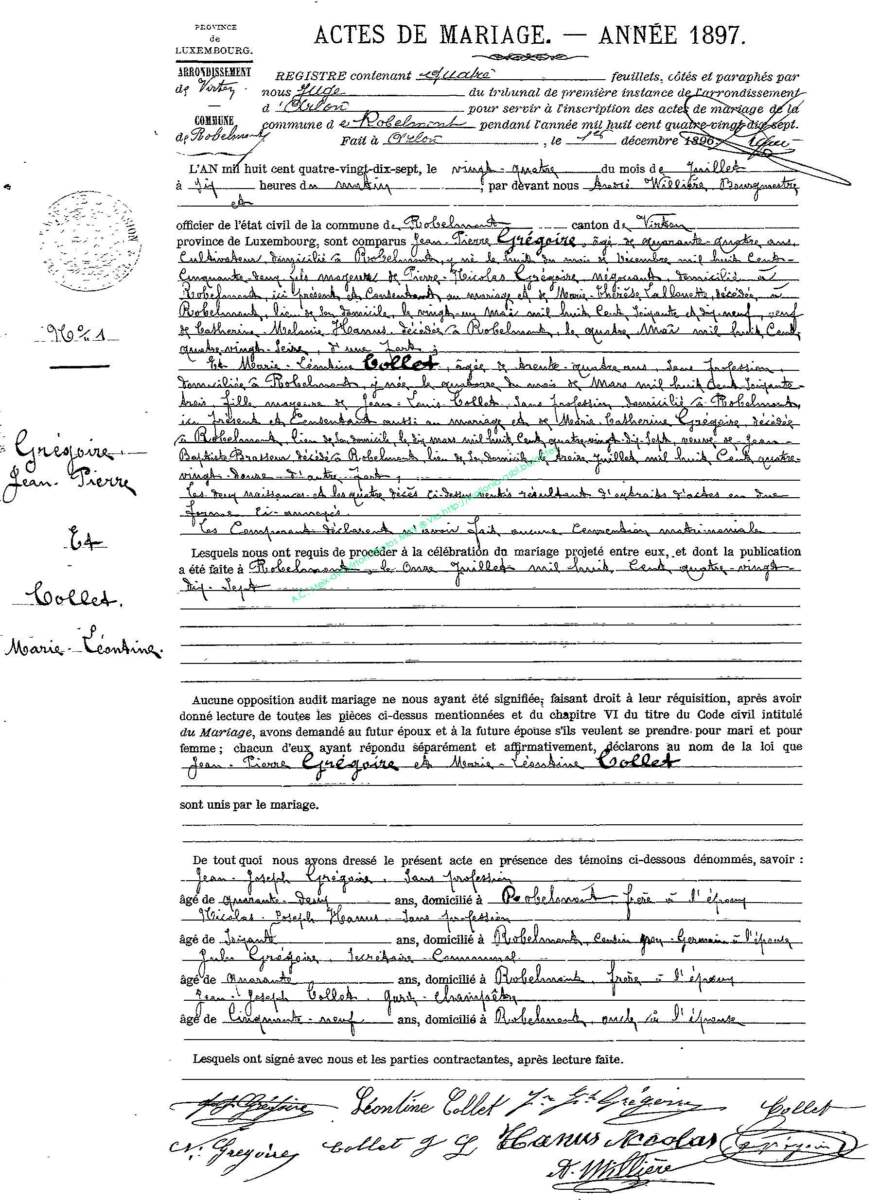 PROVINCE
de
LUXEMBOURG.
ARRONDISSEMENT
de Virton
COMMUNE
de Robelmont
ACTES DE MARIAGE. — ANNÉE 1897.
REGISTRE contenant quatre feuillets, côtés et paraphés par
nous Juge du tribunal de première instance de l'arrondissement
d'Arlon pour servir à l'inscription des actes de mariage de la
commune de Robelmont pendant l'année mil huit cent quatre-vingt-dix-sept.
Fait à Arlon, le 1er décembre 1896.
L'AN mil huit cent quatre-vingt-dix-sept, le vingt-quatre du mois de Juillet
à dix heures du matin, par devant nous André Willière Bourgmestre
et
officier de l'état civil de la commune de Robelmont canton de Virton
province de Luxembourg, sont comparus Jean-Pierre Grégoire, âgé de quarante-quatre ans,
Cultivateur, domicilié à Robelmont, y né le huit du mois de décembre mil huit Cent-
Cinquante deux, fils majeur de Pierre-Nicolas Grégoire, négociant, domicilié à
Robelmont, ici présent et Consentant au mariage et de Marie-Thérèse Lallouette, décédée à
Robelmont, lieu de son domicile, le vingt-un Mai mil huit Cent Soixante et dix neuf, veuf
de Catherine Melanie Hanus, décédée à Robelmont, le quatre Mai mil huit Cent
quatre-vingt-Seize, d'une part;
Et Marie-Léontine Collet, âgée de trente-quatre ans, Sans profession,
domiciliée à Robelmont, y née le quatorze du mois de Mars mil huit Cent Soixante-
trois, fille majeure de Jean-Louis Collet, Sans profession, domicilié à Robelmont,
ici présent et Consentant aussi au mariage et de Marie Catherine Grégoire, décédée
à Robelmont, lieu de son domicile, le dix mars mil huit Cent quatre-vingt-dix Sept, veuve de Jean-
Baptiste Brasseur décédé à Robelmont, lieu de Son domicile, le treize Juillet mil huit Cent quatre-
vingt-douze d'autre part;
Les deux naissances et les quatre décès ci-dessus résultant d'extraits d'actes en due
forme ci-annexés.
Les Comparant déclarent n'avoir fait aucune Convention matrimoniale
Lesquels nous ont requis de procéder à la célébration du mariage projeté entre eux, et dont la publication
a été faite à Robelmont, le Onze Juillet mil huit Cent quatre-vingt-
dix-Sept
No 1
Grégoire
Jean-Pierre
Et
Collet.
Marie-Léontine.
Aucune opposition audit mariage ne nous ayant été signifiée, faisant droit à leur réquisition, après avoir
donné lecture de toutes les pièces ci-dessus mentionnées et du chapitre VI du titre du Code civil intitulé
du Mariage, avons demandé au futur époux et à la future épouse s'ils veulent se prendre pour mari et pour
femme; chacun d'eux ayant répondu séparément et affirmativement, déclarons au nom de la loi que
Jean-Pierre Grégoire et Marie-Léontine Collet
sont unis par le mariage.
De tout quoi nous avons dressé le présent acte en présence des témoins ci-dessous dénommés, savoir :
Jean-Joseph Grégoire, Sans profession
âgé de quarante-deux ans, domicilié à Robelmont, frère à l'époux
Nicolas-Joseph Hanus, Sans profession
âgé de Soixante ans, domicilié à Robelmont, Cousin Germain à l'épouse
Jules Grégoire, Secrétaire Communal
âgé de Quarante ans, domicilié à Robelmont, frère à l'époux
Jean-Joseph Collet, garde-champêtre
âgé de Cinquante-neuf ans, domicilié à Robelmont, oncle à l'épouse
Lesquels ont signé avec nous et les parties contractantes, après lecture faite.
Grégoire Léontine Collet Grégoire Collet
N. Gregoire Collet J J Hanus Nicolas Grégoire
A. Willière